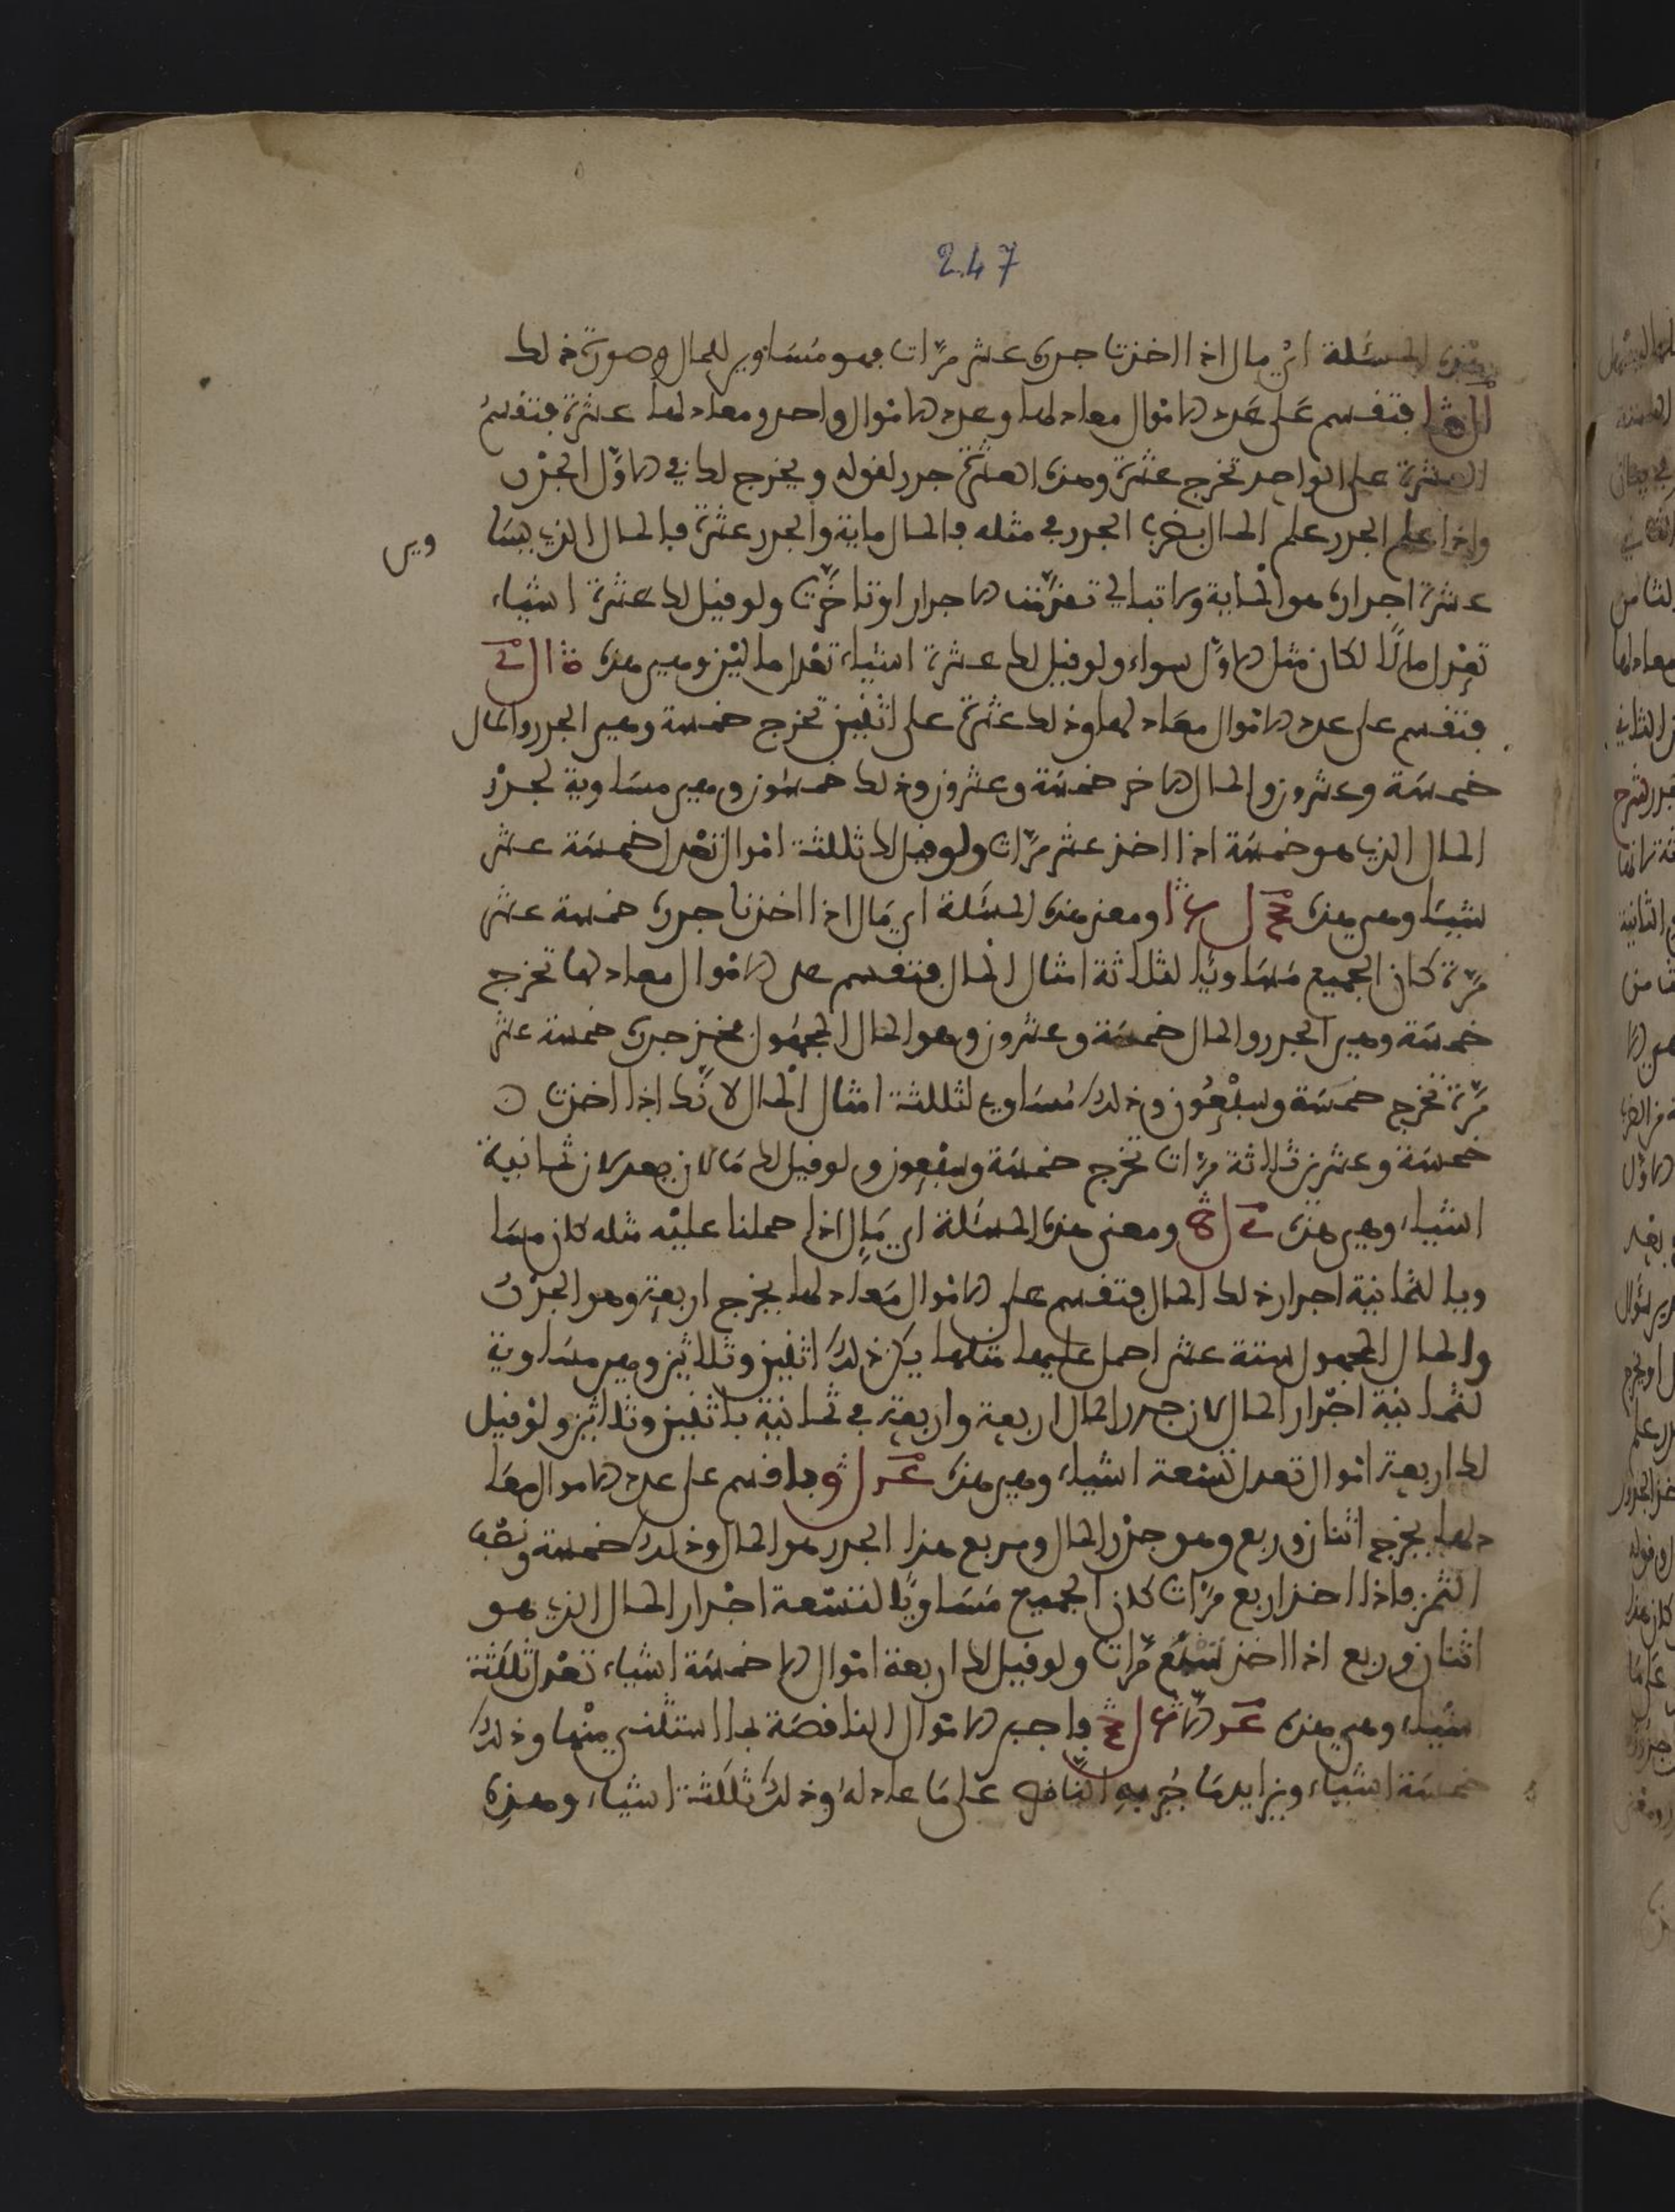 247
هذه المسئلة اي مال اذا اخذت جذره عشر مرات فهو مساوي للمال وصورة ذلك
فتقسم على عدد الاموال معادلها وعدد الاموال واحد ومعادلها عشرة فتقسم
العشرة على الواحد تخرج عشرة وهذه العشرة جذر لقوله ويخرج لك في الاول الجذر
واذا علم الجذر علم المال بضرب الجذر في مثله فالمال ماية والجذر عشرة فالمال الذي يسا
وي
عشرة اجذاره هو الماية ولا تبالي تقدمت الاجذار او تاخرت ولو قيل لك عشرة اشياء
تعدل مالا لكان مثل الاول سواء ولو قيل لك عشرة اشياء تعدل مالين وهي هذه
فتقسم على عدد الاموال معادلها وذلك عشرة على اثنين تخرج خمسة وهي الجذر والمال
خمسة وعشرون والمال الاخر خمسة وعشرون وذلك خمسون وهي مساوية لجذر
المال الذي هو خمسة اذا اخذ عشر مرات ولو قيل لك ثلثة اموال تعدل خمسة عشر
شيئا وهي هذه ومعنى هذه المسئلة اي مال اذا اخذنا جذره خمسة عشر
مرة كان الجميع مساويا لثلاثة امثال المال فتقسم على الاموال معادلها تخرج
خمسة وهي الجذر والمال خمسة وعشرون وهو المال المجهول فخذ جذره خمسة عشر
مرة تخرج خمسة وسبعون وذلك مساوي لثلثة امثال المال لانك اذا اخذت
خمسة وعشرين ثلاثة مرات تخرج خمسة وسبعون ولو قيل لك مالان يعدلان ثمانية
اشياء وهي هذه ومعنى هذه المسئلة اي مال اذا حملنا عليه مثله كان مسا
ويا لثمانية اجذار ذلك المال فتقسم على الاموال معادلها يخرج اربعة وهو الجذر
والمال المجهول ستة عشر احمل عليها مثلها يكن ذلك اثنين وثلاثين وهي مساوية
لثمانية اجذار المال لان جذر المال اربعة واربعة في ثمانية باثنين وثلاثين ولو قيل
لك اربعة اموال تعدل تسعة اشياء وهي هذه فاقسم على عدد الاموال معا
دلها يخرج اثنان وربع وهو جذر المال ومربع هذا الجذر هو المال وذلك خمسة ونصف
الثمن فاذا اخذ اربع مرات كان الجميع مساويا لتسعة اجذار المال الذي هو
اثنان وربع اذا اخذ تسع مرات ولو قيل لك اربعة اموال الا خمسة اشياء تعدل ثلثة
اشياء وهي هذه فاجبر الاموال الناقصة بما استثني منها وذلك
خمسة اشياء وزايد ما جبر به الناقص على ما عادله وذلك ثلثة اشياء وهذه